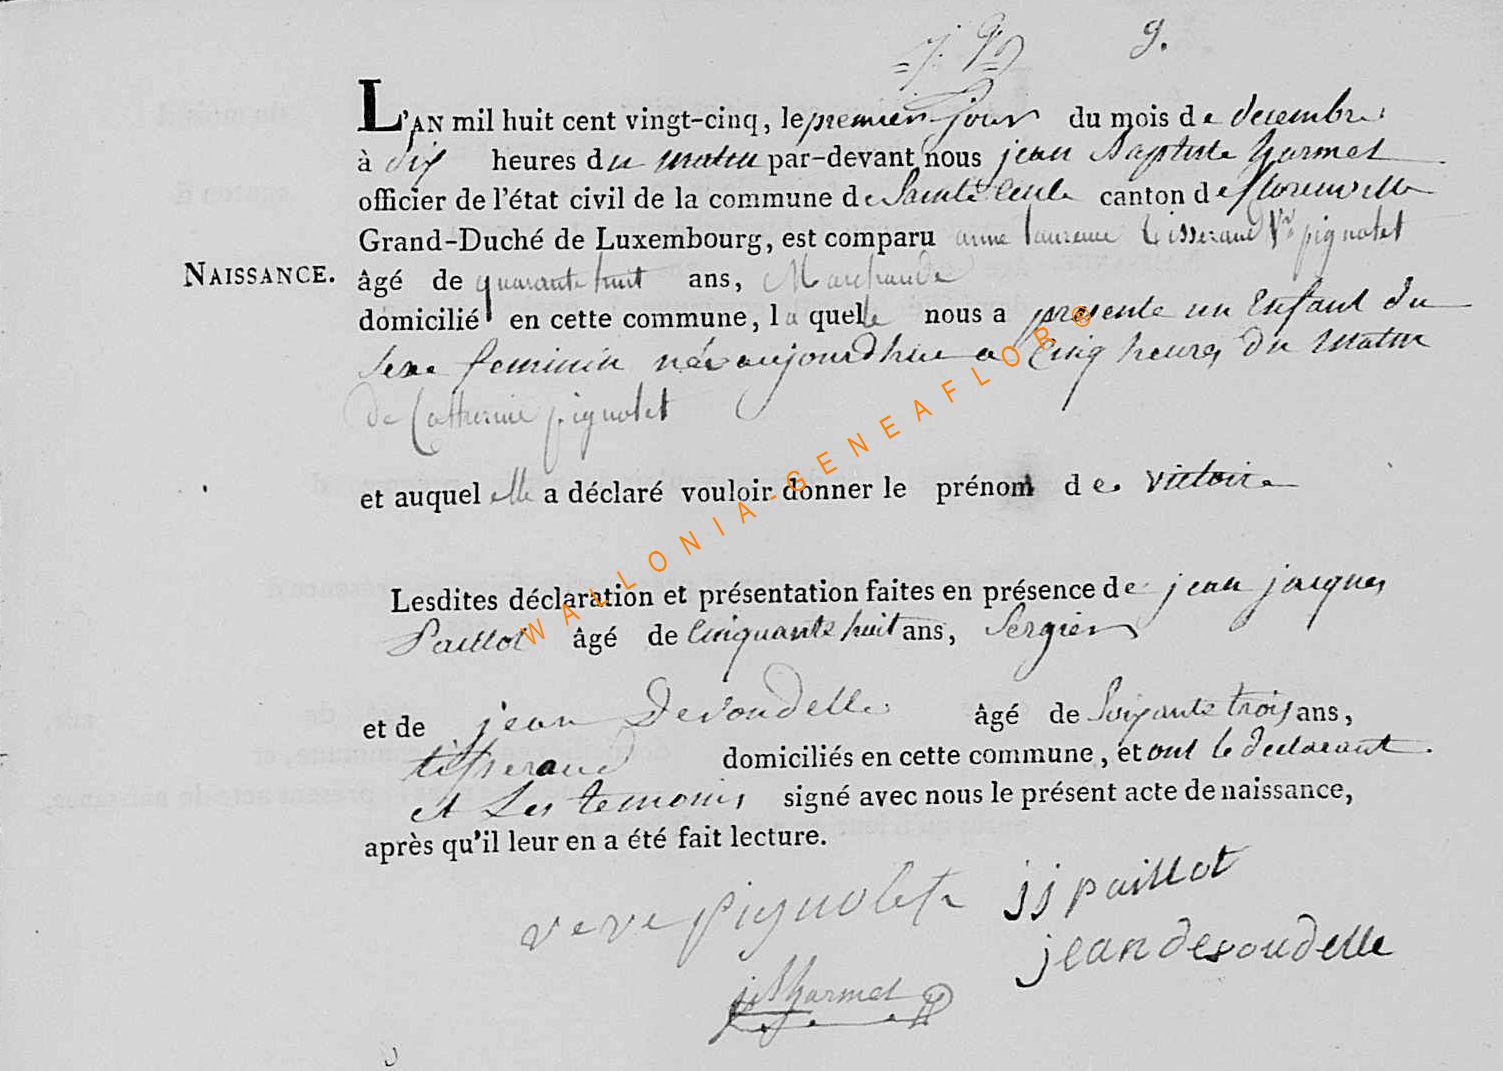 9.
L'AN mil huit cent vingt-cinq, le premier jour du mois de decembre
à dix heures du matin par-devant nous jean Baptiste harmel
officier de l'état civil de la commune de Sainte Cecile canton de florenville
Grand-Duché de Luxembourg, est comparu anne laurence tisserand Ve pignolet
NAISSANCE. âgé de quarante huit ans, Marchande
domicilié en cette commune, laquelle nous a presente un Enfant du
sexe feminin née aujourdhui a Cinq heures du matin
de Catherine pignolet
et auquel elle a déclaré vouloir donner le prénom de victoire
Lesdites déclaration et présentation faites en présence de jean jacques
Paillot âgé de Cinquante huit ans, Sergier
et de jean Devoudelle âgé de Soixante trois ans,
tisserand domiciliés en cette commune, et ont le declarant
et Les temoins signé avec nous le présent acte de naissance,
après qu'il leur en a été fait lecture.
veve pignolet jj paillot
jean devoudelle
jB harmel
WALLONIA-GENEAFLOR®